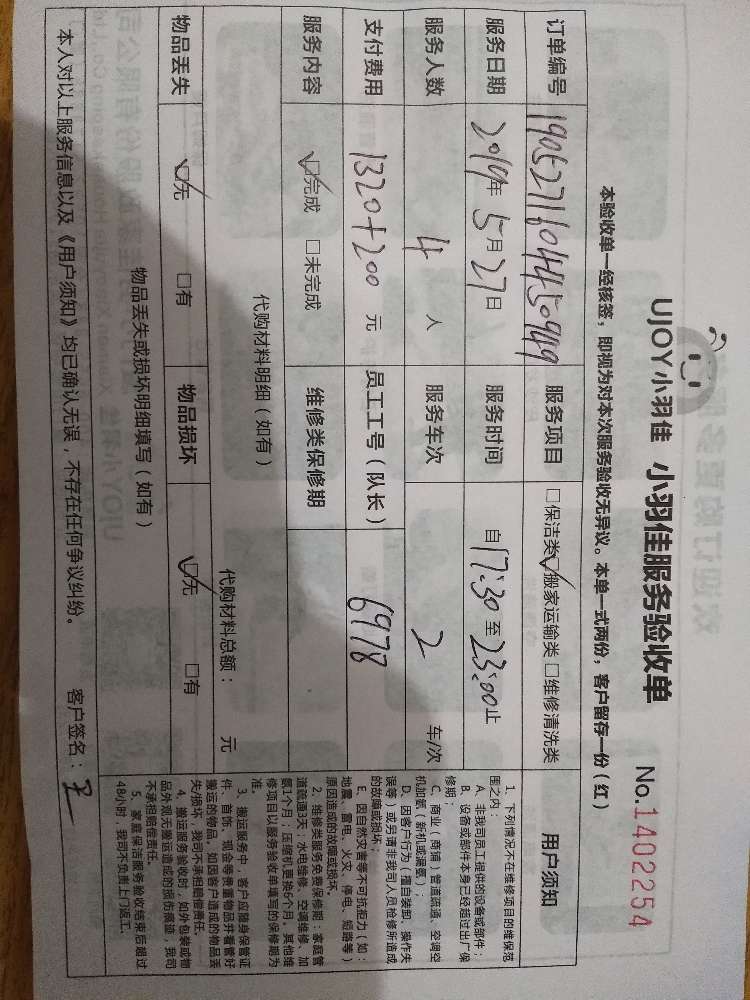 UJOY小羽佳 小羽佳服务验收单 No.1402254
本验收单一经核签，即视为对本次服务验收无异议。本单一式两份，客户留存一份（红）
订单编号 1905271604450949 服务项目 □保洁类 ☑搬家运输类 □维修清洗类
服务日期 2019年5月27日 服务时间 自17:30至23:00止
服务人数 4 人 服务车次 2 车/次
支付费用 1320+200 元 员工工号（队长） 6978
服务内容 ☑完成 □未完成 维修类保修期
代购材料明细（如有） 代购材料总额： 元
物品丢失 ☑无 □有 物品损坏 ☑无 □有
物品丢失或损坏明细填写（如有）
本人对以上服务信息以及《用户须知》均已确认无误，不存在任何争议纠纷。 客户签名：
用户须知
1、下列情况不在维修项目的维保范
围之内：
A、非我司员工提供的设备或部件；
B、设备或部件本身已经超过出厂保
修期；
C、商业（商铺）管道疏通、空调空
机加氨（新机或漏氨）；
D、因客户行为（擅自装卸、操作失
误等）或另请非我司人员检修所造成
的故障或损坏；
E、因自然灾害等不可抗拒力（如：
地震、雷电、火灾、停电、短路等）
原因造成的故障或损坏。
2、维修类服务免费保修期：家庭管
道疏通3天；水电维修、空调维修、加
氨1个月，压缩机更换6个月，其他维
修项目以服务验收单填写的保修期为
准。
3、搬运服务中，客户应随身保管证
件、首饰、现金等贵重物品并看管好
搬运的物品，如因客户造成的物品丢
失/损坏，我司不承担赔偿责任。
4、搬运服务验收时，如外包装或物
品外观无搬运造成的损伤痕迹，我司
不承担赔偿责任。
5、家庭保洁服务验收结束后超过
48小时，我司不负责上门返工。